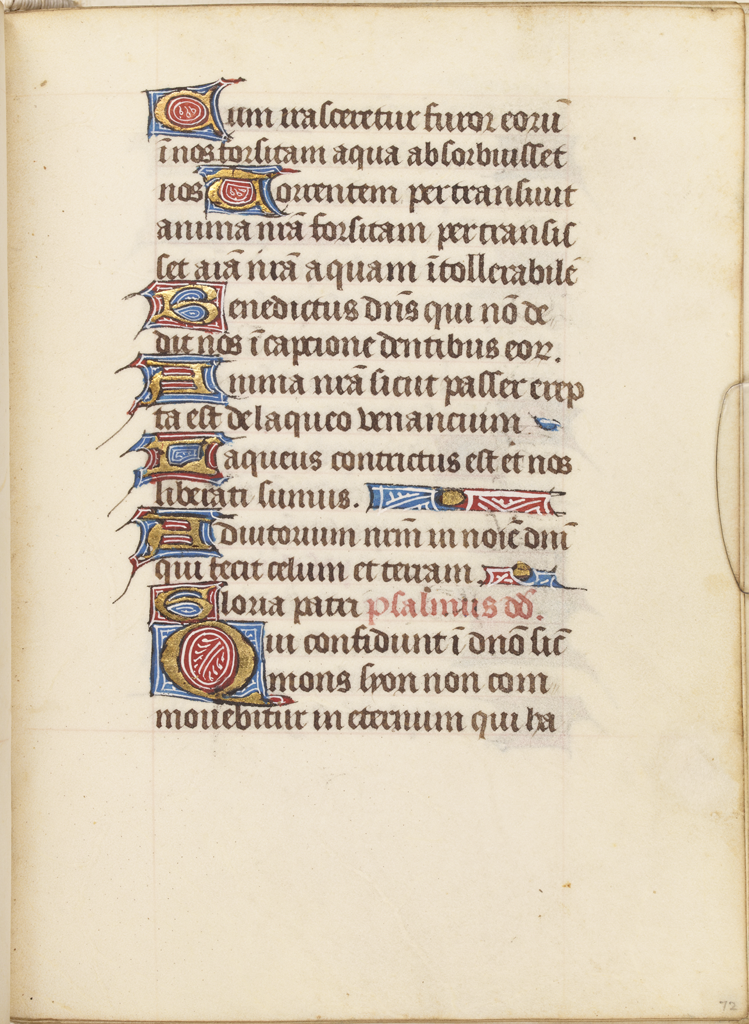 Cum irasceretur furor eorū
ī nos forsitam aqua absorbuisset
nos Torrentem pertransiuit
anima nr̄a forsitam pertransis
set aīā nr̄ā aquam ītollerabilē
Benedictus dn̄s qui nō de
dit nos ī captione dentibus eoꝝ.
Anima nr̄a sicut passer erep
ta est de laqueo venancium
Laqueus contrictus est et nos
liberati sumus.
Adiutorium nr̄m in noīe dn̄i
qui fecit celum et terram.
Gloria patri psalmus dd̄.
Qui confidunt ī dn̄o sic̄
mons syon non com
mouebitur in eternum qui ha
72